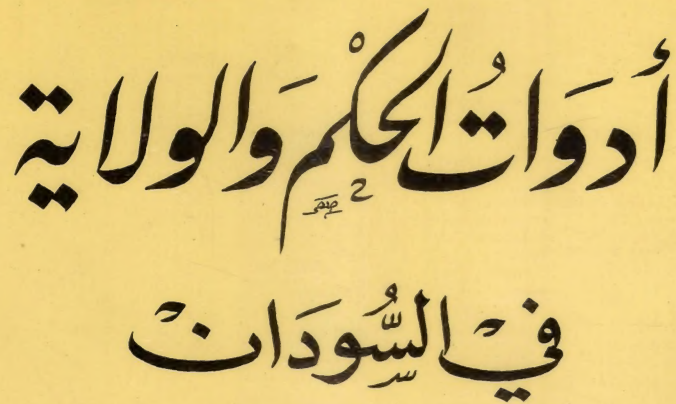 أدوَاتُ الحكْم وَالولاية
فيْ السُّودَانْ